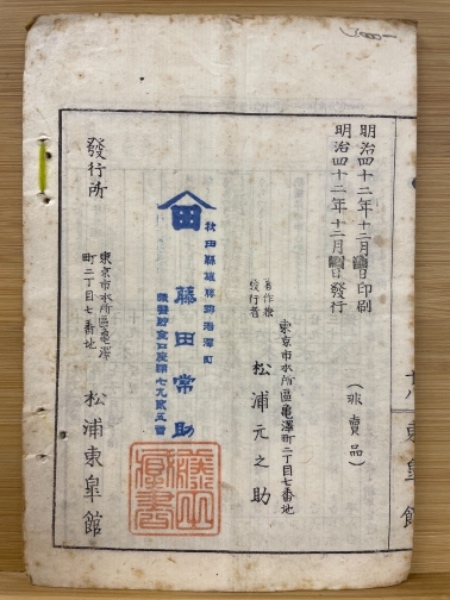 明治四十二年十二月 日印刷
明治四十二年十二月 日發行
(非賣品)
東京市本所區亀澤町二丁目七番地
著作兼
發行者
松浦元之助
秋田縣雄勝郡湯澤町
田
藤田常助
發行所
東京市本所區亀澤
町二丁目七番地
松浦東皐館
東皐館